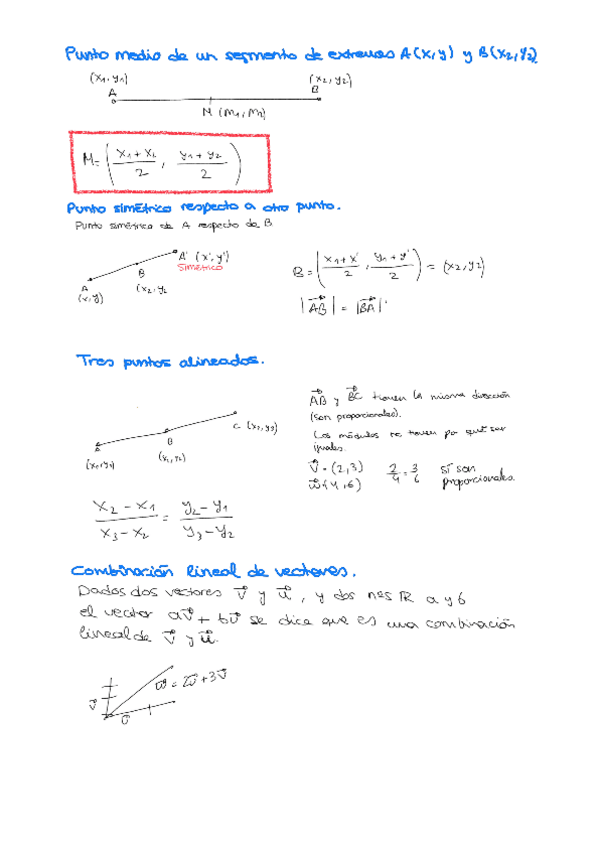 Punto medio de un segmento de extremos A(x,y) y B(x2,y2).
(x1,y1) (x2,y2)
A B
M (m1,m2)
M=(x1+x2/2, y1+y2/2)
Punto simétrico respecto a otro punto.
Punto simétrico de A respecto de B
A' (x',y')
simétrico
B
A (x2,y2
(x,y)
B=(x1+x'/2, y1+y'/2) = (x2,y2)
|AB| = |BA|
Tres puntos alineados.
C (x3,y3)
B
A
(x1,y1) (x2,y2)
AB y BC tienen la misma dirección
(son proporcionales).
Los módulos no tienen por qué ser
iguales.
v=(2,3) 2/4=3/6 sí son
w(4,6) proporcionales.
x2-x1/x3-x2 = y2-y1/y3-y2
Combinación lineal de vectores.
Dados dos vectores v y u, y dos nos R a y b
el vector av+bu se dice que es una combinación
lineal de v y u.
w=2u+3v
v
u